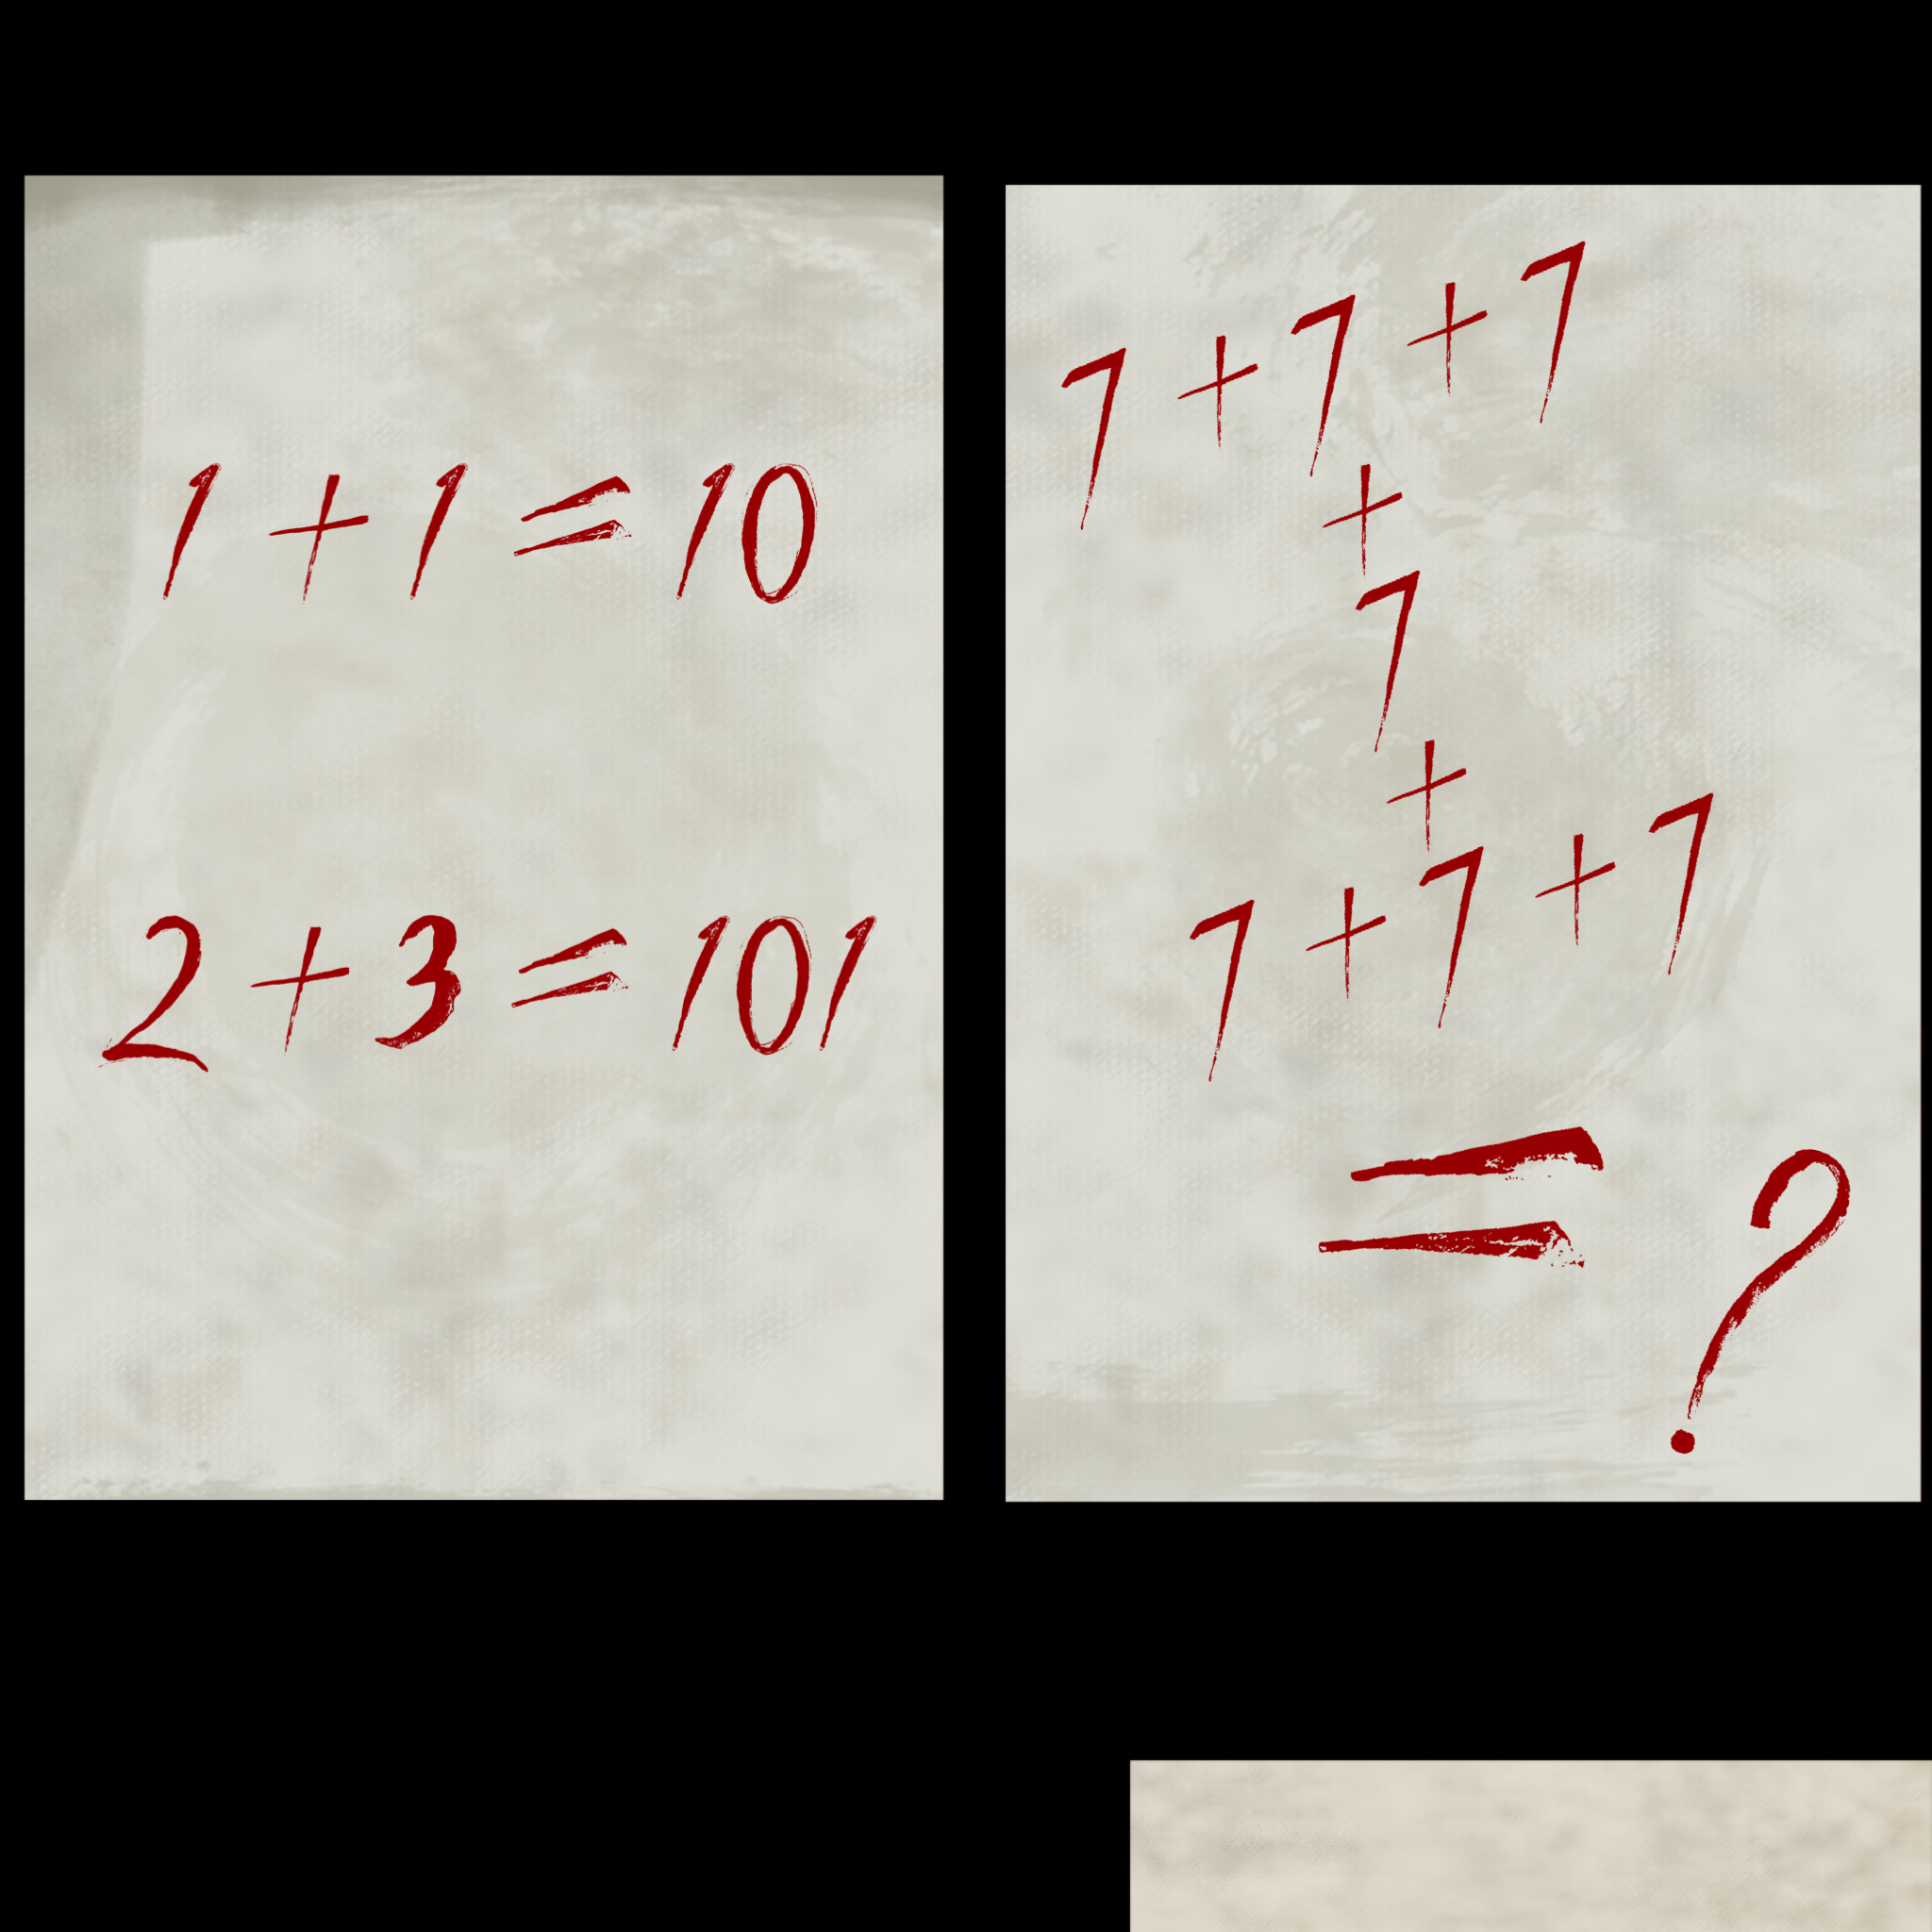 1 + 1 = 10
2 + 3 = 101
7 + 7 + 7
+
7
+
7 + 7 + 7
= ?